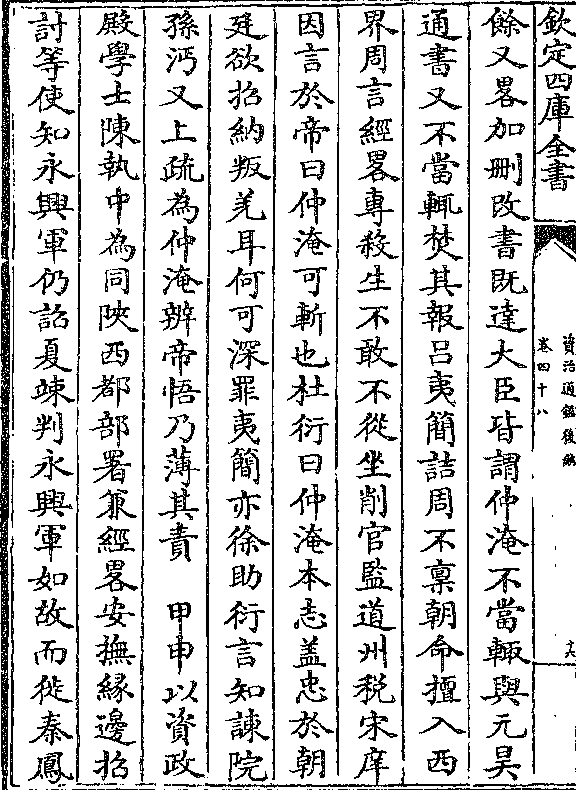 欽定四庫全書
資治通鑑後編
卷四十八
餘又畧加刪改書既達大臣皆謂仲淹不當輒與元昊
通書又不當輒焚其報吕夷簡詰周不禀朝命擅入西
界周言經畧專殺生不敢不從坐削官監道州稅宋庠
因言於帝曰仲淹可斬也杜衍曰仲淹本志葢忠於朝
廷欲招納叛羌耳何可深罪夷簡亦徐助衍言知諫院
孫沔又上疏為仲淹辨帝悟乃薄其責　甲申以資政
殿學士陳執中為同陜西都部署兼經畧安撫緣邊招
討等使知永興軍仍詔夏竦判永興軍如故而徙秦鳳